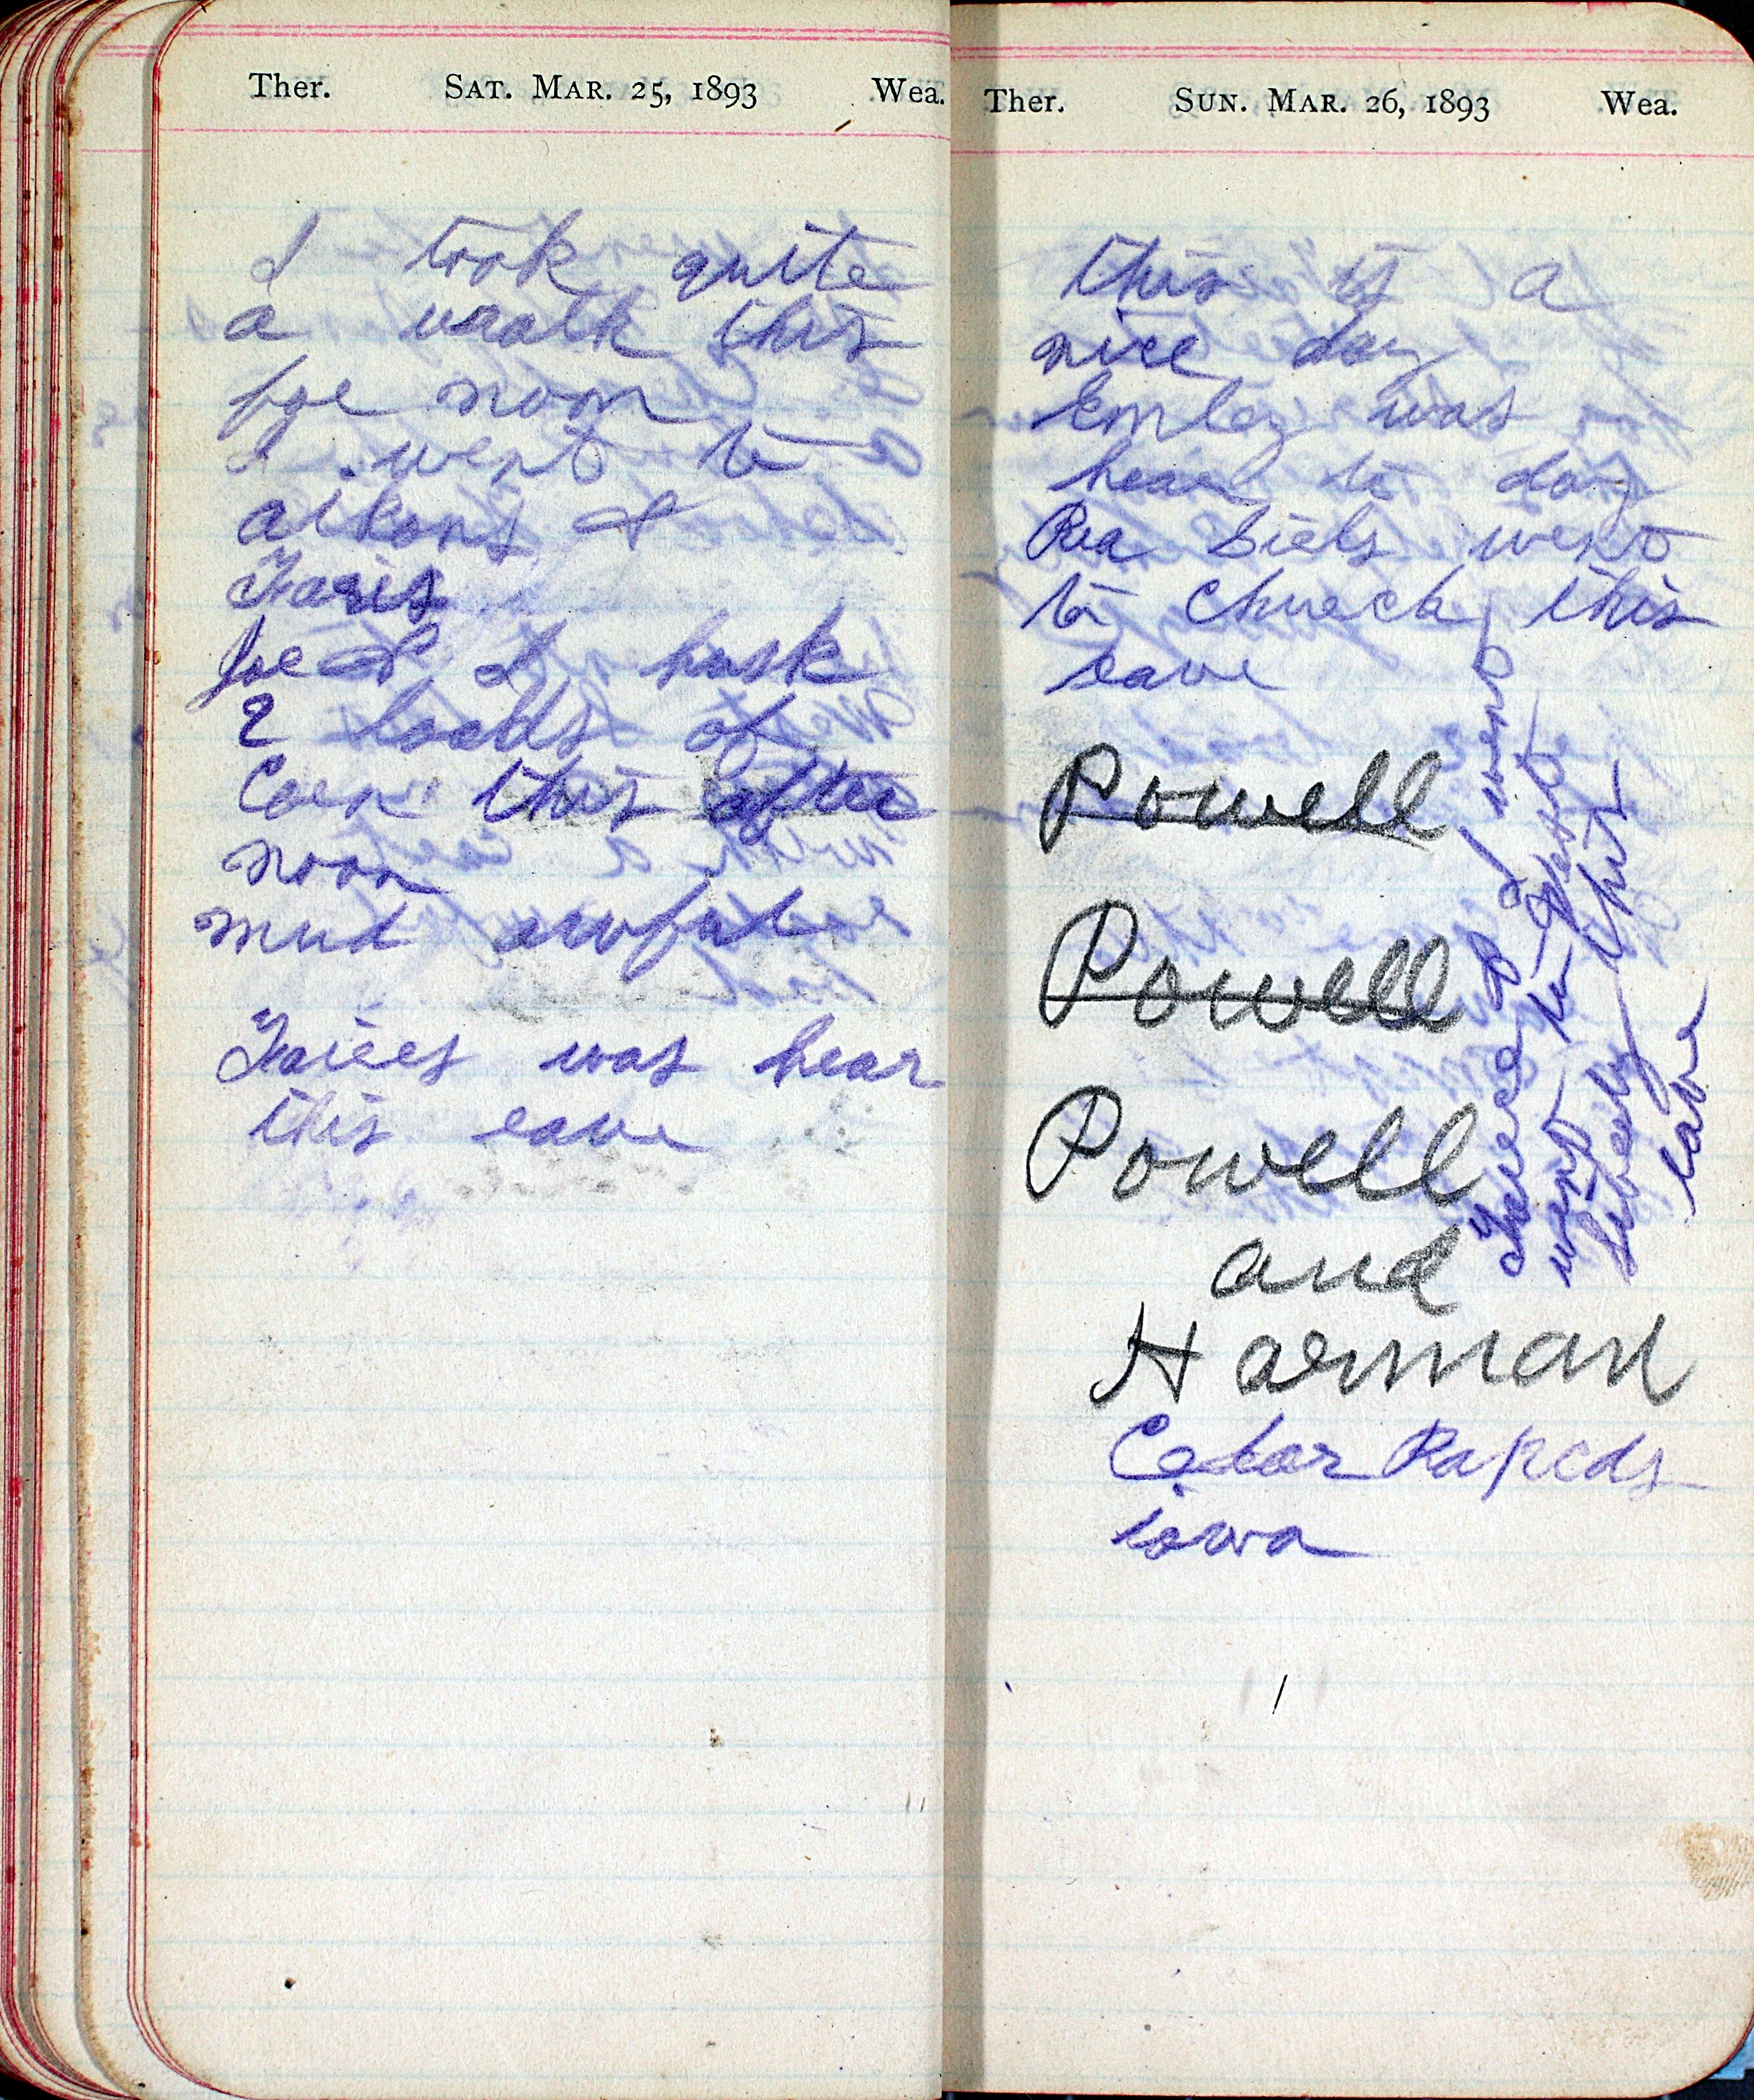 Ther. SAT. MAR. 25, 1893 Wea.
I took quite
a walk this
foe noon
I went to
aikens &
Faries
Joe & I husk
2 loads of
Coen this after
noon
mud awful
Faries was hear
this eave
Ther. SUN. MAR. 26, 1893 Wea.
this is a
nice day
Emley was
hear to day
Rea Siels went
to Chuech this
eave
Powell
Powell
Powell
and
Harman
Cedar Rapeds
iowa
& I went
went to
this
eave